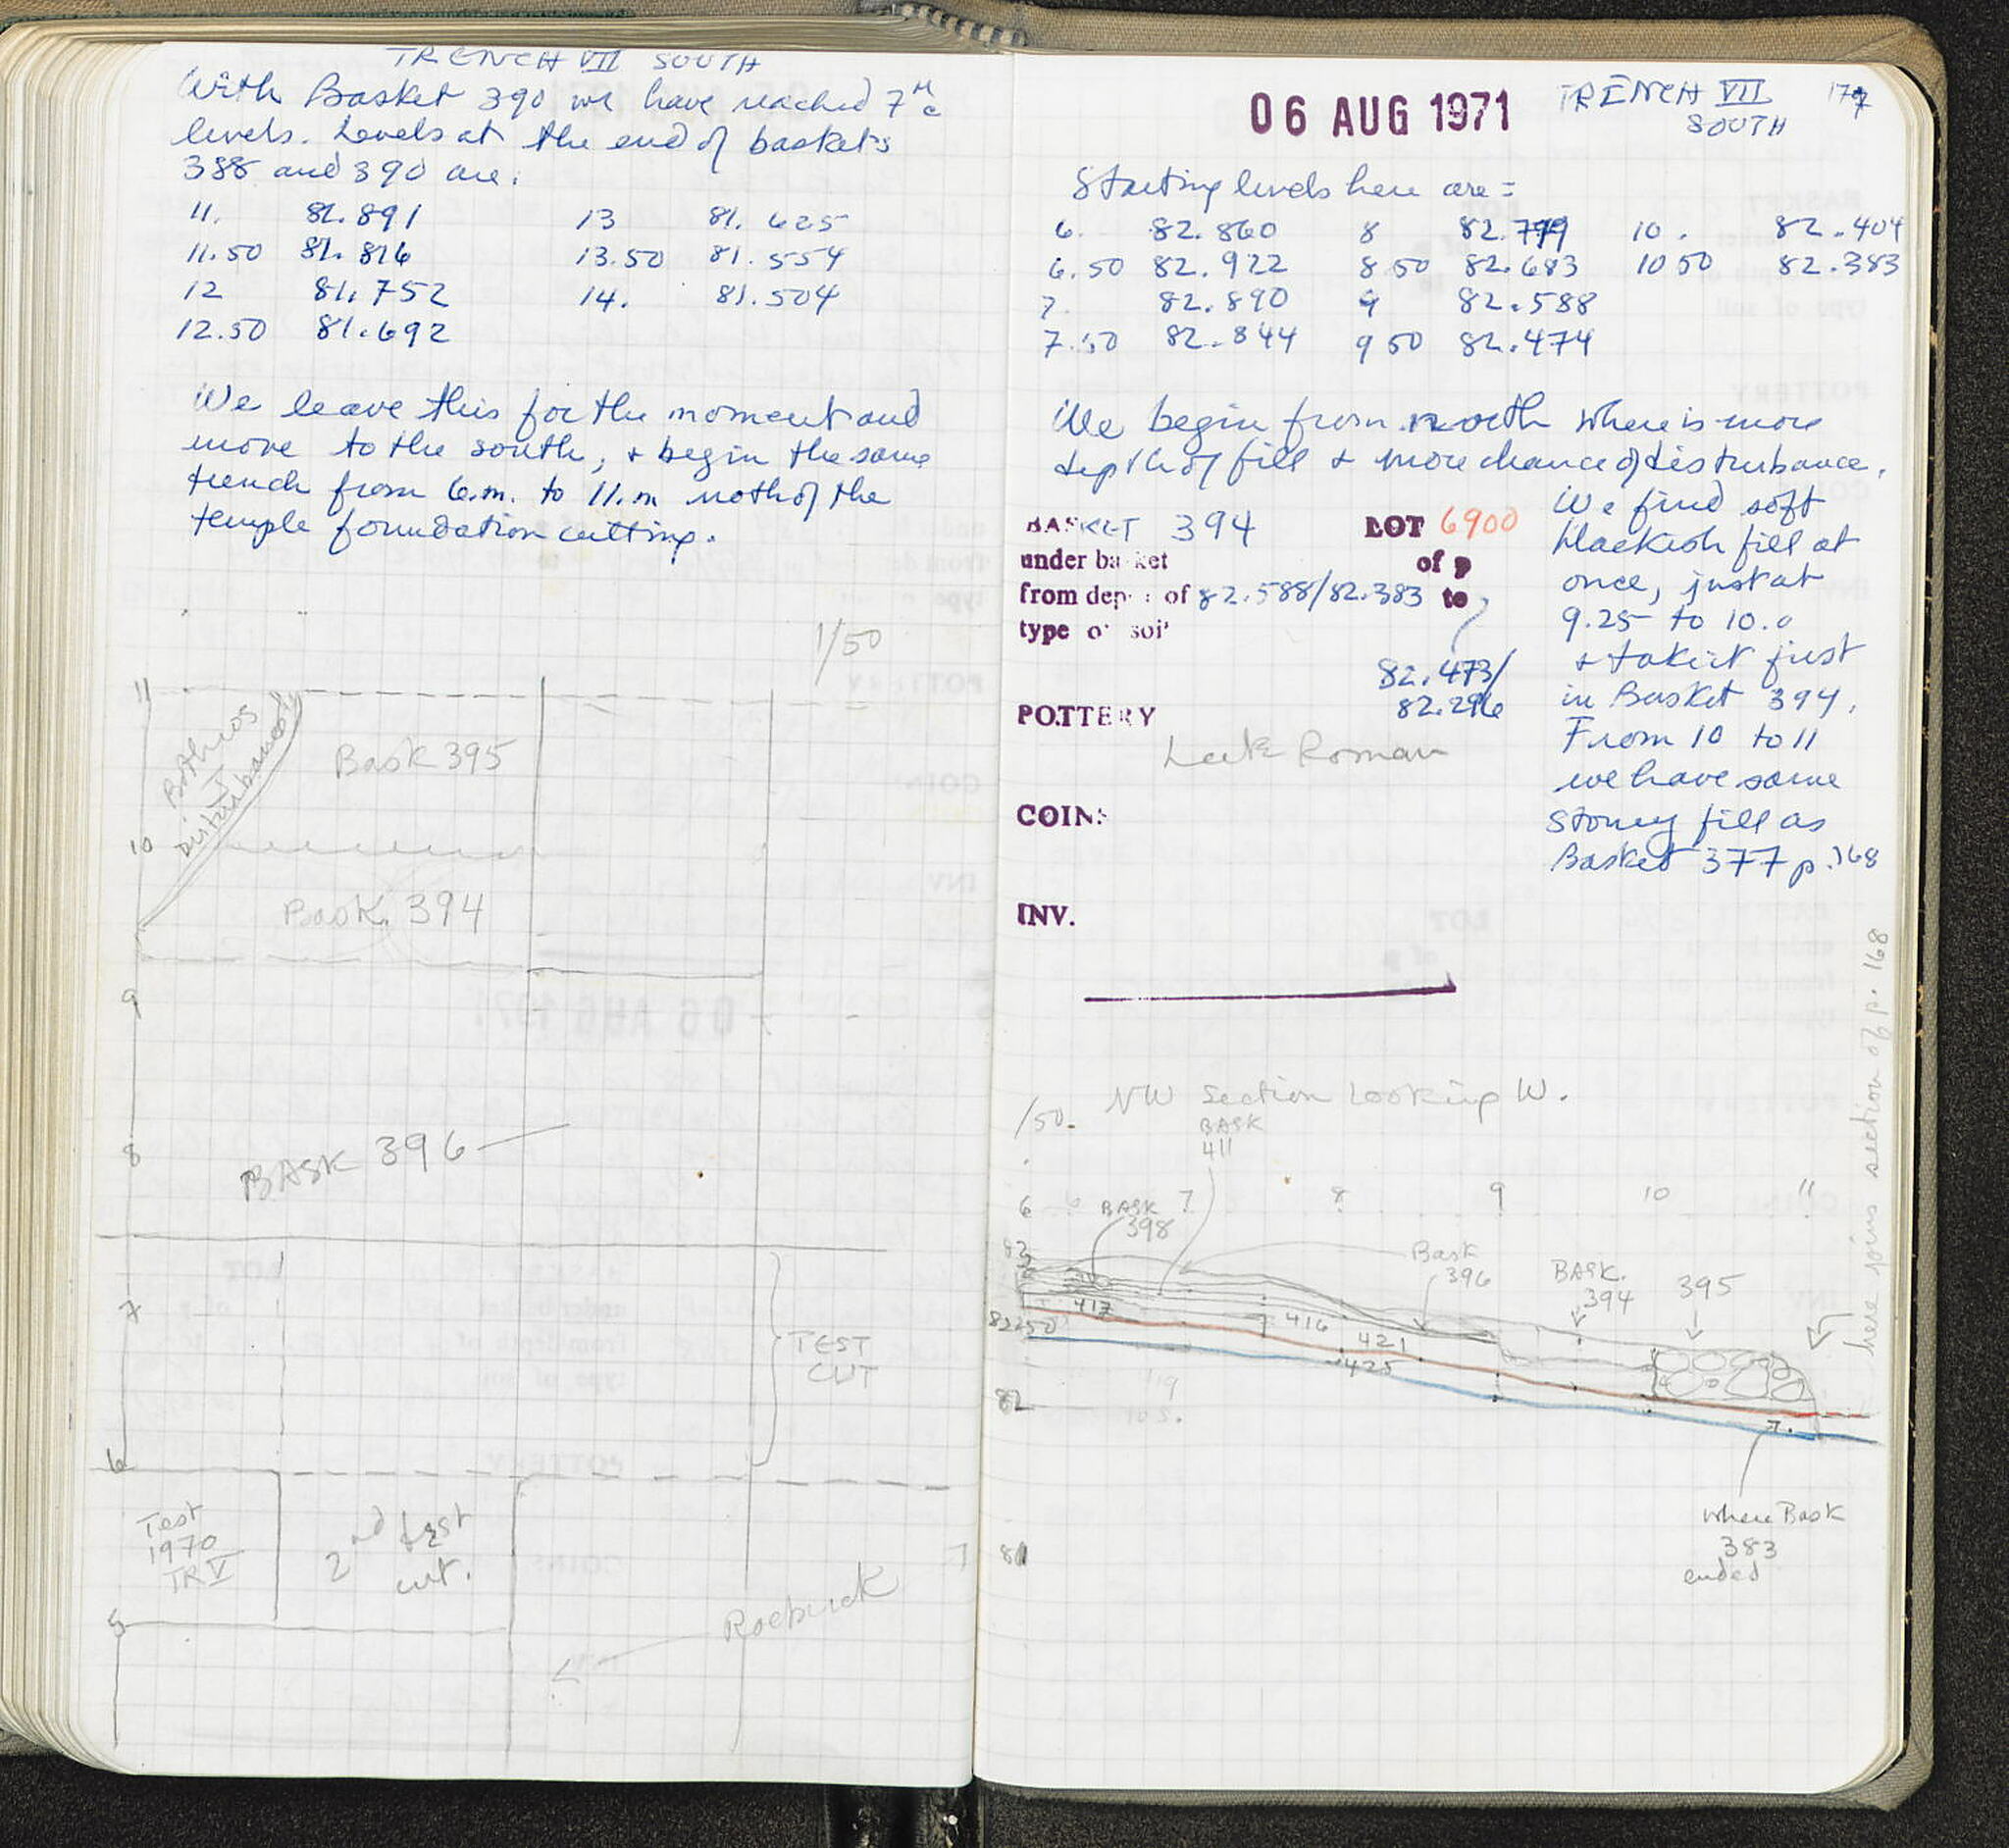 TRENCH VII SOUTH
With Basket 390 we have reached 7th c
levels. Levels at the end of baskets
388 and 390 are:
11. 81.891 13 81.625
11.50 81.816 13.50 81.554
12 81.752 14. 81.504
12.50 81.692
We leave this for the moment and
move to the south, & begin the same
trench from 6.m. to 11.m noth of the
temple foundation cutting.
1/50
11
Bothros
I
disturbance
Bask 395
10
Bask. 394
9
8
BASK 396
7
TEST
CUT
6
Test
1970
TR V
2nd test
cut.
5
Roebuck
06 AUG 1971
TRENCH VII
SOUTH
Starting levels here are =
6. 82.860 8 82.799 10. 82.404
6.50 82.922 8 50 82.683 10 50 82.383
7. 82.890 9 82.588
7.50 82.844 9 50 82.474
We begin from north where is more
depth of fill & more chance of disturbance.
BASKET 394 LOT 6900
under basket of p
from depth of 82.588/82.383 to
type of soil
82.473/
82.296
POTTERY
Late Roman
COINS
INV.
We find soft
blackish fill at
once, just at
9.25 to 10.0
& take it first
in Basket 394.
From 10 to 11
we have same
stoney fill as
Basket 377 p.168
/50. NW Section Looking W.
BASK
411
6 7 8 9 10 11
BASK
398
83
Bask
396
BASK.
394
395
417
416
421
425
82.50
82
7.
where Bask
383
ended
81
here joins section of p. 168